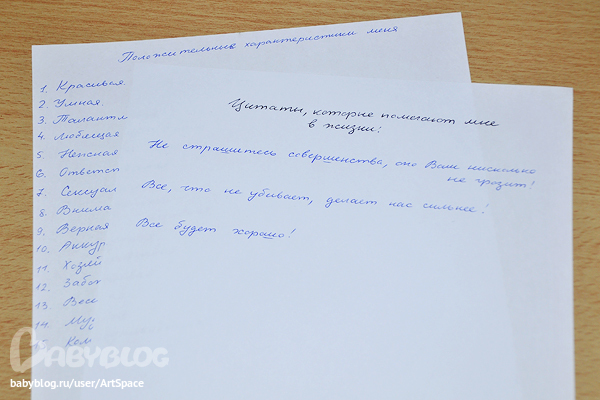 Положительные характеристики меня
1. Красивая
2. Умная.
3. Талантл
4. Любящая
5. Нежная
6. Ответст
7. Сексуал
8. Внима
9. Верная
10. Аккур
11. Хозяй
12. Забот
13. Весе
14.
Цитаты, которые помогают мне
в жизни:
Не страшитесь совершенства, оно Вам нисколько
не грозит!
Все, что не убивает, делает нас сильнее!
Все будет хорошо!
BABYBLOG
babyblog.ru/user/ArtSpace